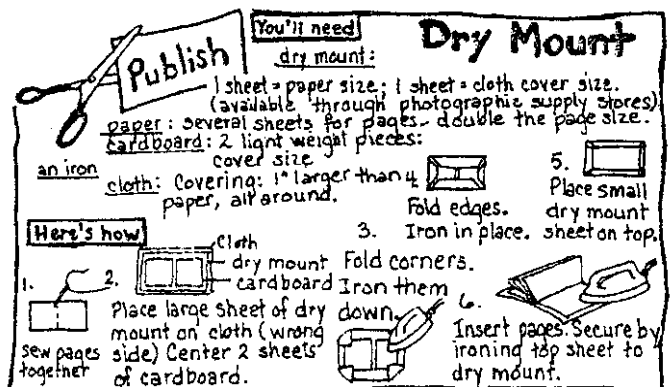 Publish
You'll need
Dry Mount
dry mount:
1 sheet = paper size; 1 sheet = cloth cover size.
(available through photographic supply stores)
paper: several sheets for pages - double the page size.
cardboard: 2 light weight pieces:
cover size
an iron
cloth: Covering: 1" larger than
paper, all around.
Here's how
1.
sew pages
together
2.
Cloth
dry mount
cardboard
Place large sheet of dry
mount on cloth (wrong
side) Center 2 sheets
of cardboard.
3.
Fold corners.
Iron them
down.
4.
Fold edges.
Iron in place.
5.
Place small
dry mount
sheet on top.
6.
Insert pages. Secure by
ironing top sheet to
dry mount.